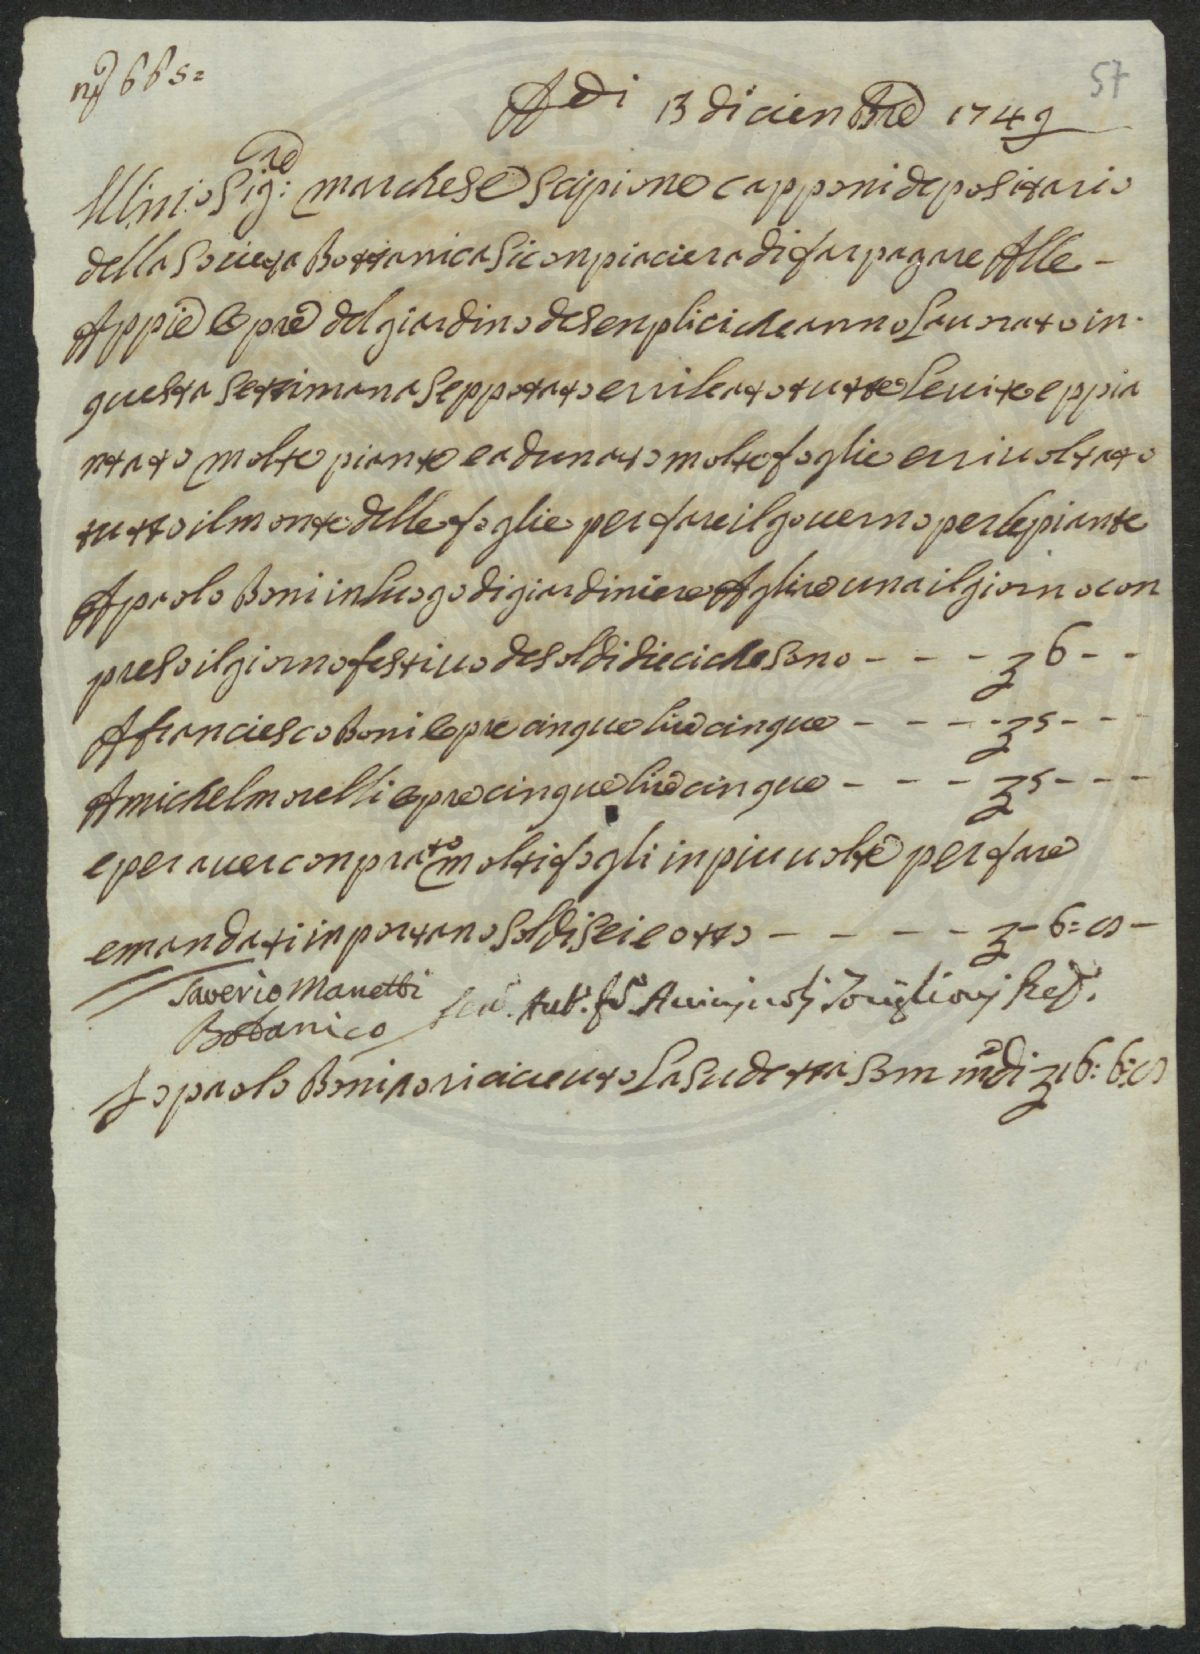 n° 665=
57
Adi 13 diciembre 1749
Illmo Sigre: marchese Scipione Capponi depositario
della Societa Bottanica si conpiaciera di far pagare Alle
Appie e opre del giardino de senplici che anno Lavorato in
questa settimana seppotato erri leato tutte le vite eppia
ntato molte piante e adunato molte foglie errivoltato
tutto il monte delle foglie per fare il governo per le piante
A paolo Boni in Luogo di giardiniere A glire una il giorno con
preso il giorno festivo de soldi dieci che sono - - - £ 6 - -
A franciesco Boni opre cinque lire cinque - - - - £ 5 - - -
A michel morelli opre cinque lire cinque - - - £ 5 - - -
e per aver conprato molti fogli in piu volte per fare
e mandati inportano soldi sei e otto - - - - - £ - 6: 8 -
Saverio Manetti
Botanico
Io paolo Boni o ricieuto La sudetta som ma di £ 16: 6: 8